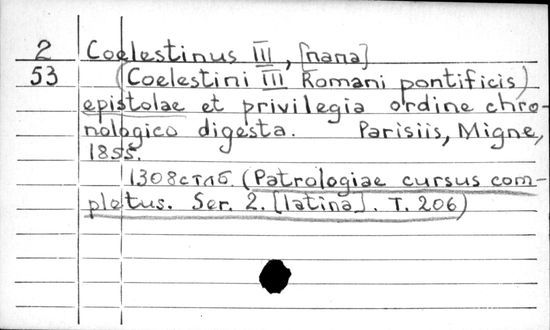 2 Coelestinus III, [папа]
53 (Coelestini III Romani pontificis)
epistolae et privilegia ordine chro-
nologico digesta. Parisiis, Migne,
1855.
1308 стлб. (Patrologiae cursus com-
pletus. Ser. 2. [latina]. T. 206)